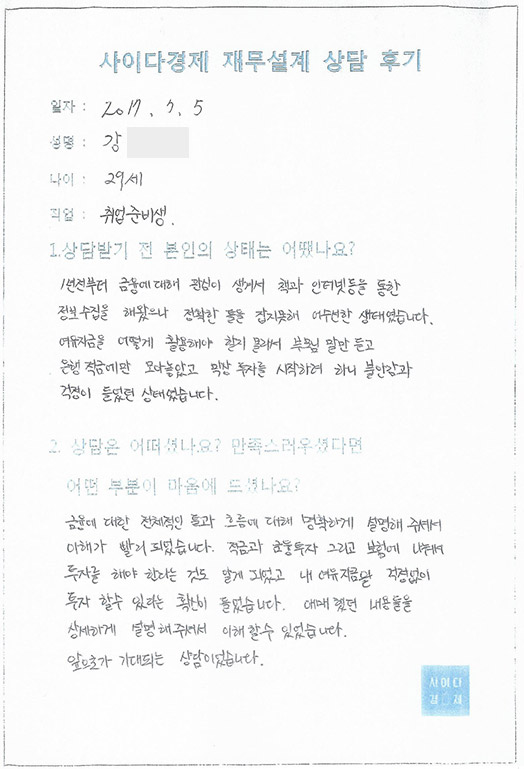 사이다경제 재무설계 상담 후기
일자 : 2017. 7. 5
성명 : 강
나이 : 29세
직업 : 취업준비생.
1.상담받기 전 본인의 상태는 어땠나요?
1년전부터 금융에 대해 관심이 생겨서 책과 인터넷등을 통한
정보수집을 해왔으나 정확한 틀을 잡지못해 어수선한 상태였습니다.
여유자금을 어떻게 활용해야 할지 몰라서 부모님 말만 듣고
은행 적금에만 모아놓았고 막상 투자를 시작하려 하니 불안감과
걱정이 들었던 상태였습니다.
2. 상담은 어떠셨나요? 만족스러우셨다면
어떤 부분이 마음에 드셨나요?
금융에 대한 전체적인 틀과 흐름에 대해 명확하게 설명해 주셔서
이해가 빨리 되었습니다. 적금과 투자 그리고 보험에 나눠서
투자를 해야 한다는 것도 알게 되었고 내 여유자금을 걱정없이
투자 할수 있다는 확신이 들었습니다. 애매했던 내용들을
상세하게 설명해주셔서 이해할수 있었습니다.
앞으로가 기대되는 상담이었습니다.
사이다
경제